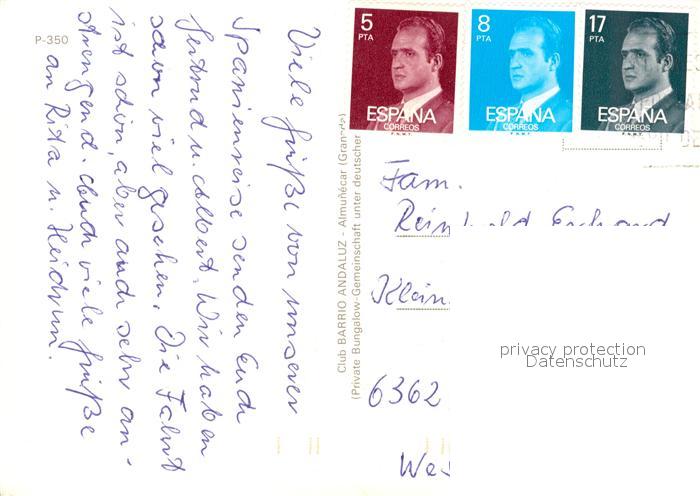 P-350
Viele Grüße von unserer
Spanienreise senden Euch
Gertrud u. Albert. Wir haben
schon viel gesehen. Die Fahrt
ist schön, aber auch sehr an-
strengend. Auch viele Grüße
an Rita u. Heidrun.
Club BARRIO ANDALUZ - Almuñécar (Granada)
(Private Bungalow-Gemeinschaft unter deutscher
5 PTA
ESPAÑA
CORREOS
F.N.M.T.
8 PTA
ESPAÑA
CORREOS
F.N.M.T.
17 PTA
ESPAÑA
CORREOS
F.N.M.T.
Fam.
Klein
6362
privacy protection
Datenschutz